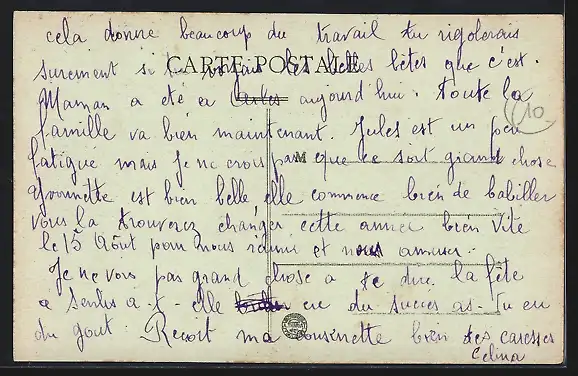 cela donne beaucoup du travail tu rigolerais
surement si tu voyais les belles bêtes que c'est.
CARTE POSTALE
Maman a été en aujourd'hui. Toute la
10
famille va bien maintenant. Jules est un peu
fatigué mais je ne crois pas que ce soit grand chose
M
est bien belle elle commence bien de babiller
vous la trouverez changée cette année bien vite
le 15 Août pour nous réunir et nous amuser.
Je ne vois pas grand chose a te dire la fête
a Senlis a-t-elle eu du succes as-tu eu
du gout. Recoit ma cousinette bien des caresses
Celina